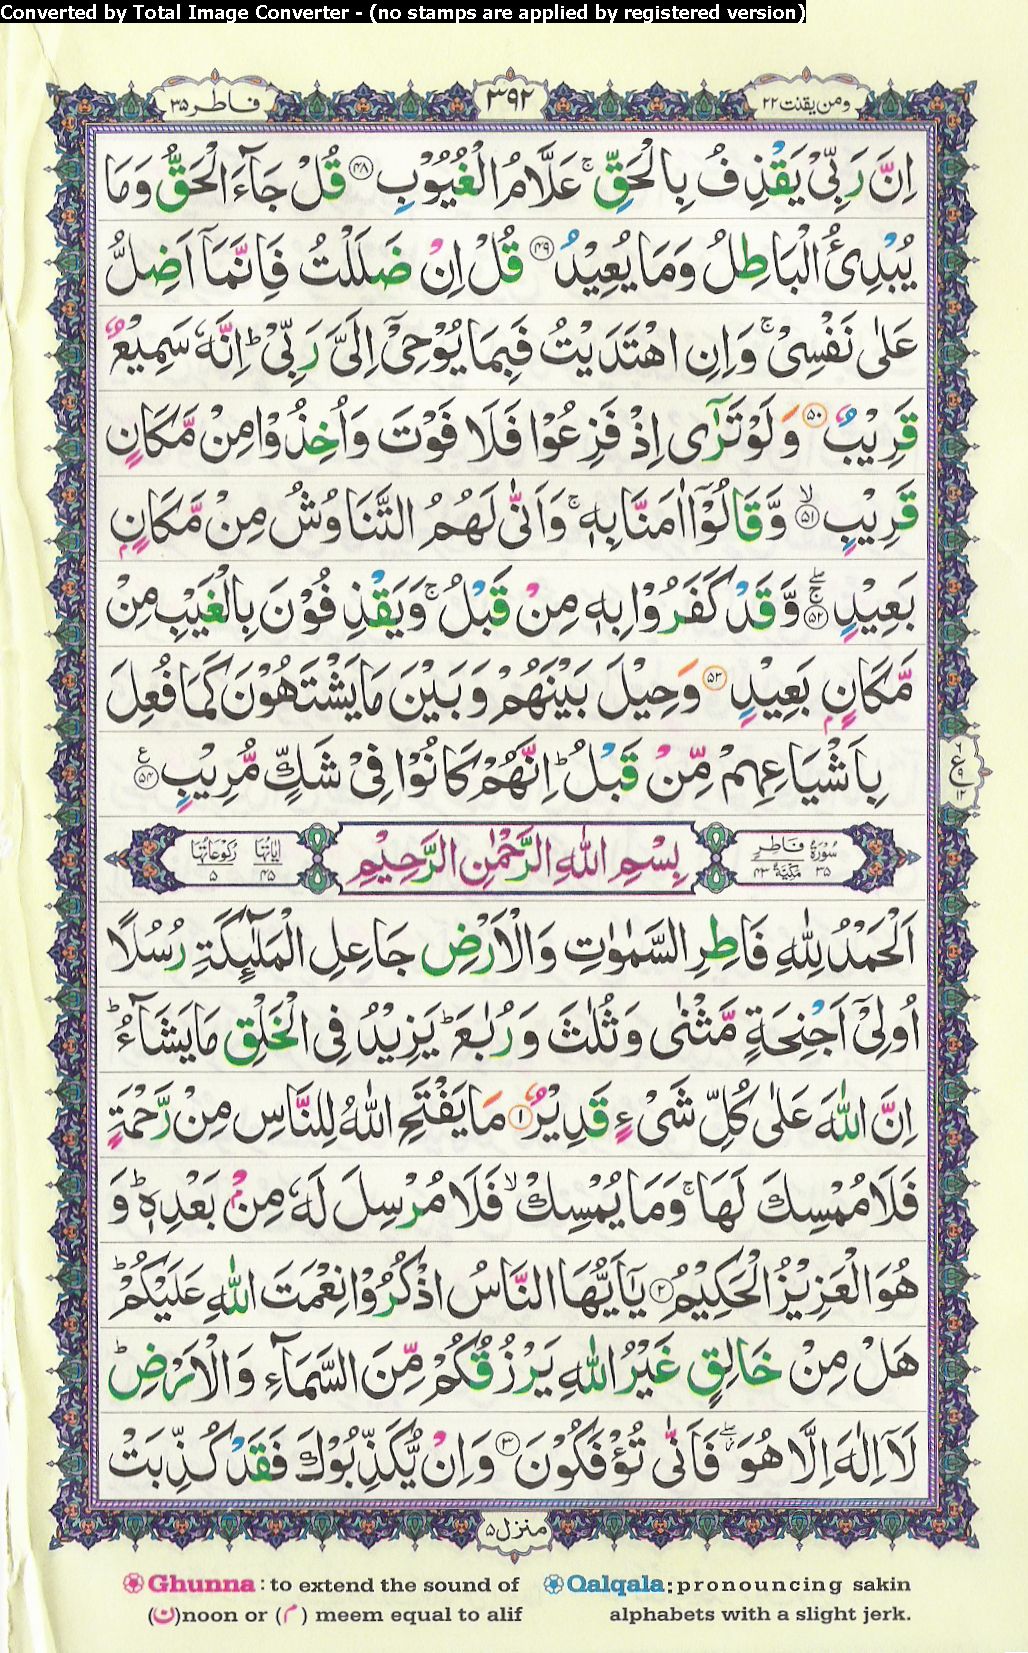 Converted by Total Image Converter - (no stamps are applied by registered version)
ومن يقنت ٢٢
٣٩٢
فاطر ٣٥
اِنَّ رَبِّيْ يَقْذِفُ بِالْحَقِّ ۚ عَلَّامُ الْغُيُوْبِ ۴۸ قُلْ جَآءَ الْحَقُّ وَمَا
يُبْدِئُ الْبَاطِلُ وَمَا يُعِيْدُ ۴۹ قُلْ اِنْ ضَلَلْتُ فَاِنَّمَآ اَضِلُّ
عَلٰى نَفْسِيْ ۚ وَاِنِ اهْتَدَيْتُ فَبِمَا يُوْحِيْٓ اِلَيَّ رَبِّيْ ؕ اِنَّهٗ سَمِيْعٌ
قَرِيْبٌ ۵۰ وَلَوْ تَرٰٓى اِذْ فَزِعُوْا فَلَا فَوْتَ وَاُخِذُوْا مِنْ مَّكَانٍ
قَرِيْبٍ ۙ ۵۱ وَّقَالُوْٓا اٰمَنَّا بِهٖ ۚ وَاَنّٰى لَهُمُ التَّنَاوُشُ مِنْ مَّكَانٍۭ
بَعِيْدٍ ۚۖ ۵۲ وَّقَدْ كَفَرُوْا بِهٖ مِنْ قَبْلُ ۚ وَيَقْذِفُوْنَ بِالْغَيْبِ مِنْ
مَّكَانٍۭ بَعِيْدٍ ۵۳ وَحِيْلَ بَيْنَهُمْ وَبَيْنَ مَا يَشْتَهُوْنَ كَمَا فُعِلَ
بِاَشْيَاعِهِمْ مِّنْ قَبْلُ ؕ اِنَّهُمْ كَانُوْا فِيْ شَكٍّ مُّرِيْبٍ ۵۴ ع
٦ ع ٩ ١٢
سُوْرَةُ فَاطِرٍ ٣٥ مَكِّيَّةٌ ٤٣
بِسْمِ اللّٰهِ الرَّحْمٰنِ الرَّحِيْمِ
اٰيَاتُهَا ٤٥ رُكُوْعَاتُهَا ٥
اَلْحَمْدُ لِلّٰهِ فَاطِرِ السَّمٰوٰتِ وَالْاَرْضِ جَاعِلِ الْمَلٰٓئِكَةِ رُسُلًا
اُولِيْٓ اَجْنِحَةٍ مَّثْنٰى وَثُلٰثَ وَرُبٰعَ ؕ يَزِيْدُ فِي الْخَلْقِ مَا يَشَآءُ ؕ
اِنَّ اللّٰهَ عَلٰى كُلِّ شَيْءٍ قَدِيْرٌ ۱ مَا يَفْتَحِ اللّٰهُ لِلنَّاسِ مِنْ رَّحْمَةٍ
فَلَا مُمْسِكَ لَهَا ۚ وَمَا يُمْسِكْ ۙ فَلَا مُرْسِلَ لَهٗ مِنْۢ بَعْدِهٖ ؕ وَ
هُوَ الْعَزِيْزُ الْحَكِيْمُ ۲ يٰٓاَيُّهَا النَّاسُ اذْكُرُوْا نِعْمَتَ اللّٰهِ عَلَيْكُمْ ؕ
هَلْ مِنْ خَالِقٍ غَيْرُ اللّٰهِ يَرْزُقُكُمْ مِّنَ السَّمَآءِ وَالْاَرْضِ ؕ
لَآ اِلٰهَ اِلَّا هُوَ ۖ فَاَنّٰى تُؤْفَكُوْنَ ۳ وَاِنْ يُّكَذِّبُوْكَ فَقَدْ كُذِّبَتْ
منزل ۵
Ghunna : to extend the sound of
(ن)noon or (م) meem equal to alif
Qalqala : pronouncing sakin
alphabets with a slight jerk.